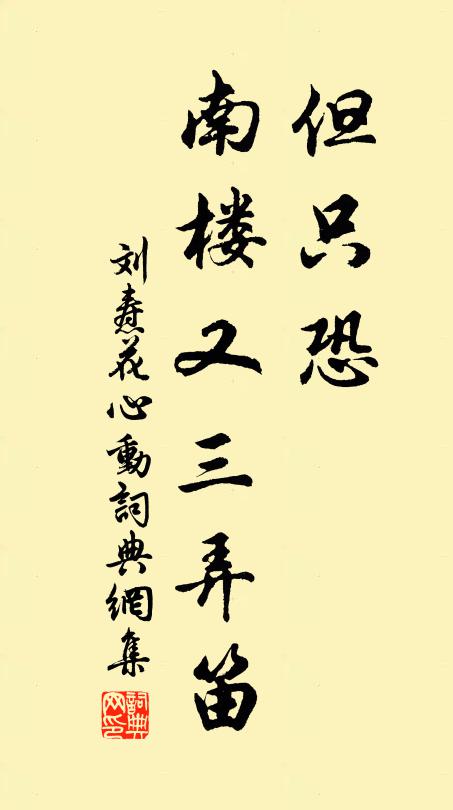 但只恐
南楼又三弄笛
刘焘花心動詞典網集
詞典网印